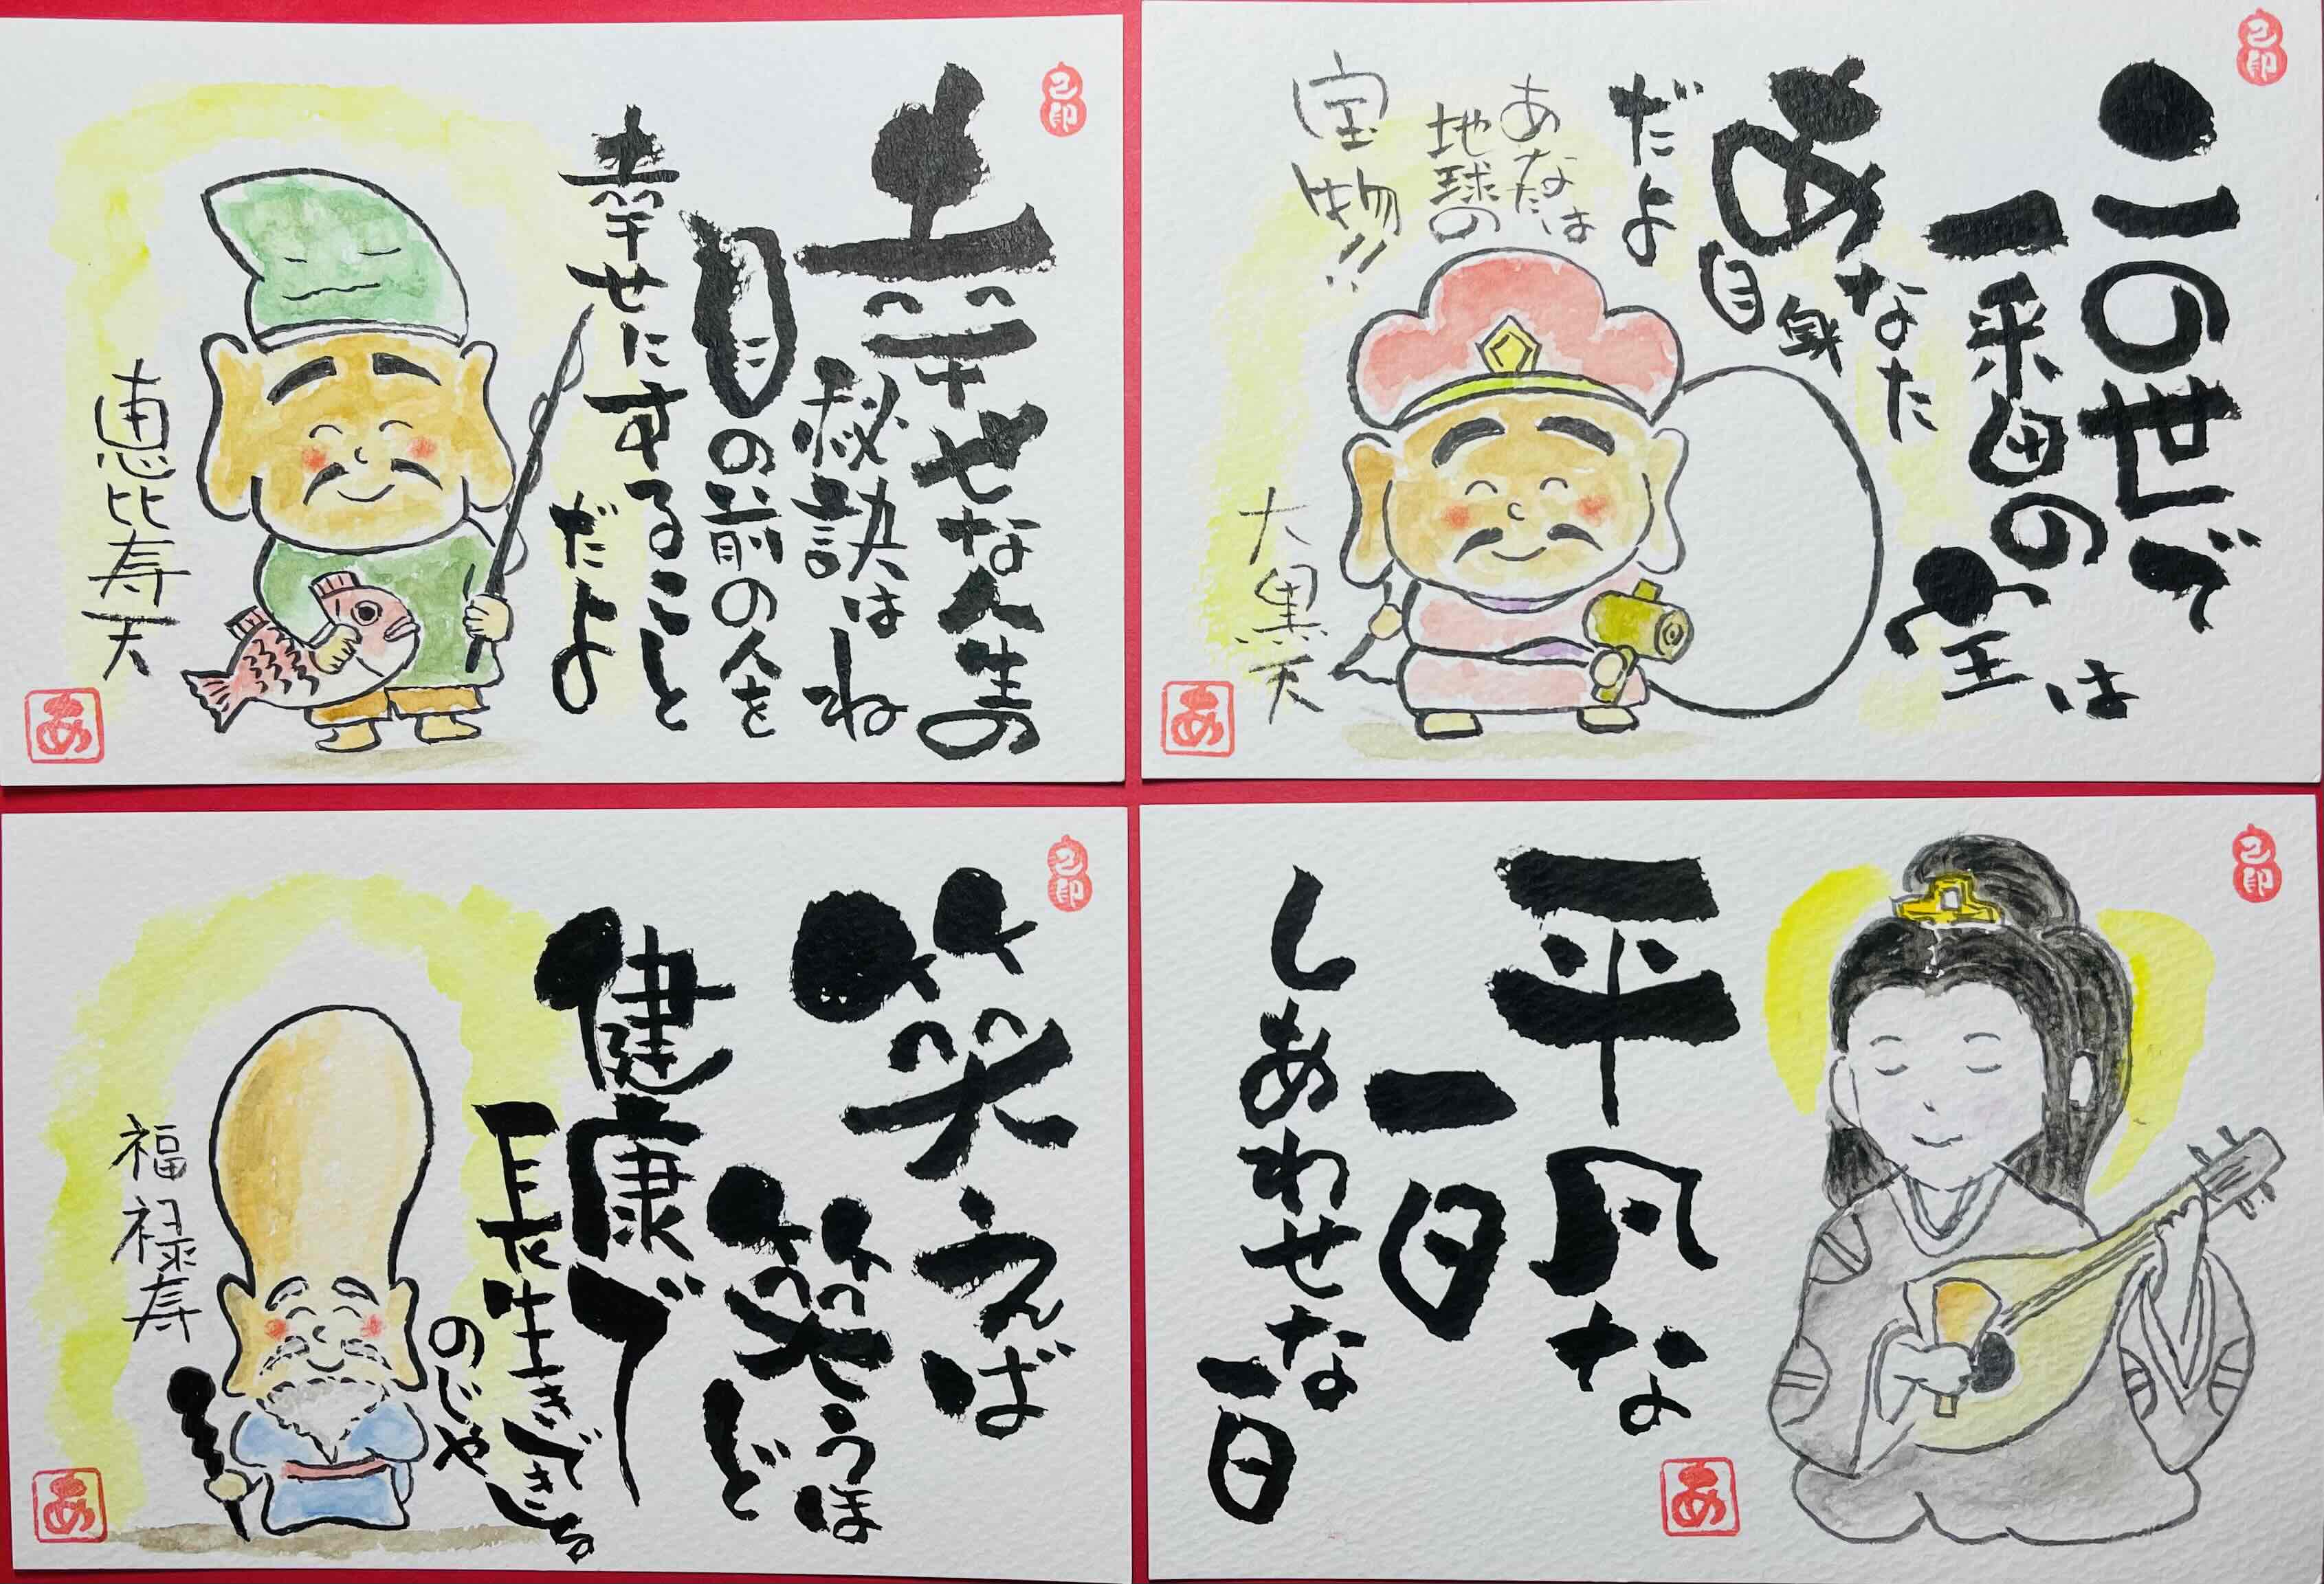 幸せな人生の
秘訣はね
目の前の人を
幸せにすること
だよ
恵比寿天
己印
あ
この世で
一番の
宝は
あなた
自身
だよ
あなたは
地球の
宝物!!
大黒天
己印
あ
笑えば
笑うほ
ど
健康で
長生きできる
のじゃ
福禄寿
己印
あ
平凡な
一日
しあわせな
一日
己印
あ